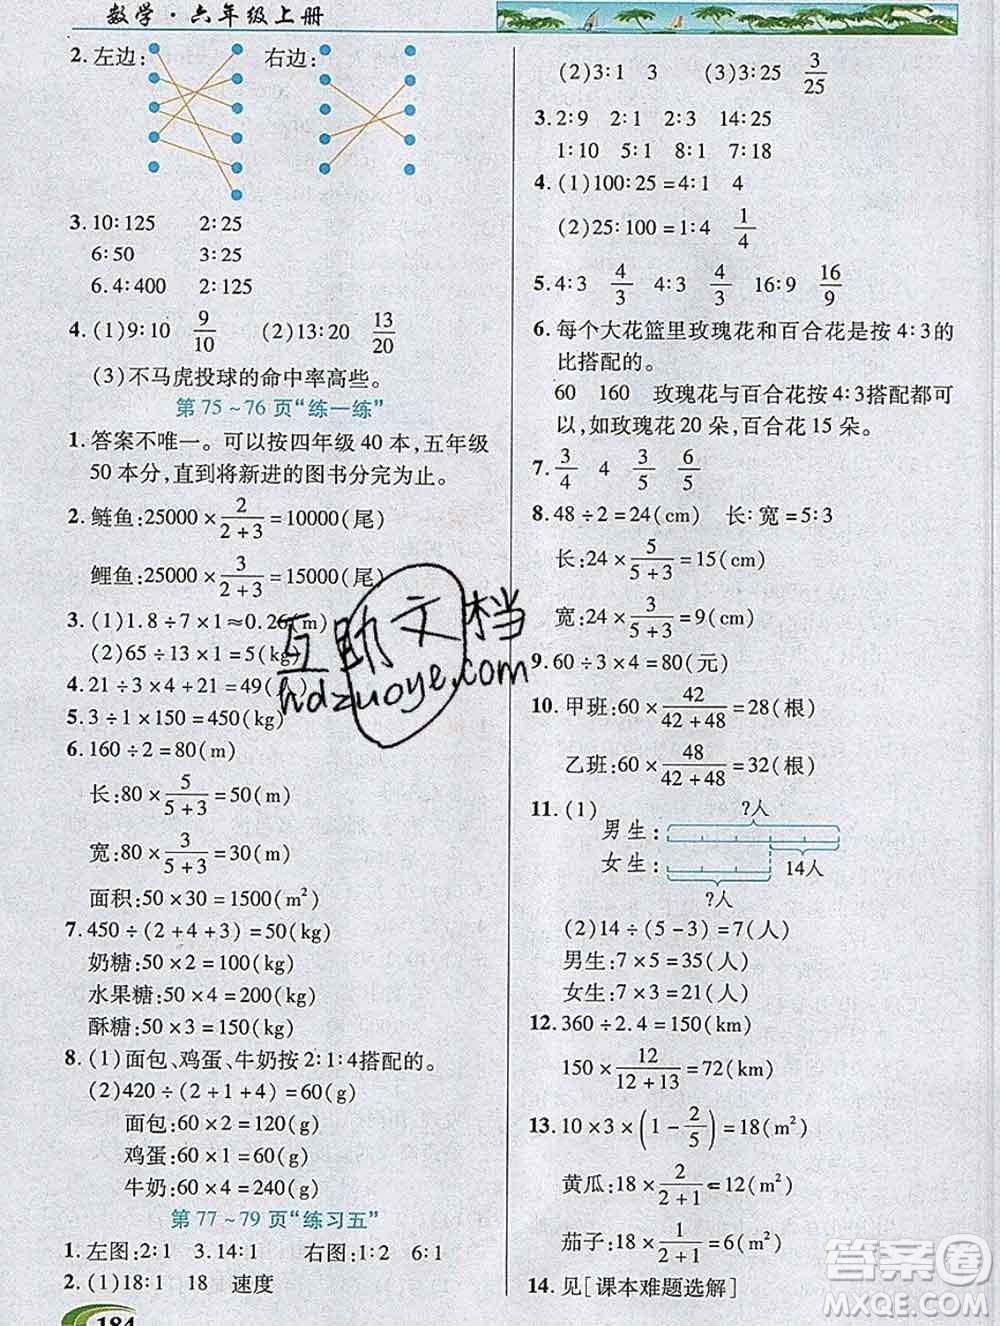 数学·六年级上册
2. 左边: 右边:
3. 10∶125 2∶25
6∶50 3∶25
6.4∶400 2∶125
4. (1)9∶10 9/10 (2)13∶20 13/20
(3)不马虎投球的命中率高些。
第 75～76 页“练一练”
1. 答案不唯一。可以按四年级 40 本,五年级
50 本分,直到将新进的图书分完为止。
2. 鲢鱼:25000×2/(2+3)=10000(尾)
鲤鱼:25000×3/(2+3)=15000(尾)
3. (1)1.8÷7×1≈0.26(m)
(2)65÷13×1=5(kg)
4. 21÷3×4+21=49(人)
5. 3÷1×150=450(kg)
6. 160÷2=80(m)
长:80×5/(5+3)=50(m)
宽:80×3/(5+3)=30(m)
面积:50×30=1500(m²)
7. 450÷(2+4+3)=50(kg)
奶糖:50×2=100(kg)
水果糖:50×4=200(kg)
酥糖:50×3=150(kg)
8. (1)面包、鸡蛋、牛奶按 2∶1∶4搭配的。
(2)420÷(2+1+4)=60(g)
面包:60×2=120(g)
鸡蛋:60×1=60(g)
牛奶:60×4=240(g)
第 77～79 页“练习五”
1. 左图:2∶1 3.14∶1 右图:1∶2 6∶1
2. (1)18∶1 18 速度
184
(2)3∶1 3 (3)3∶25 3/25
3. 2∶9 2∶1 2∶3 14∶25
1∶10 5∶1 8∶1 7∶18
4. (1)100∶25=4∶1 4
(2)25∶100=1∶4 1/4
5. 4∶3 4/3 4∶3 4/3 16∶9 16/9
6. 每个大花篮里玫瑰花和百合花是按 4∶3的
比搭配的。
60 160 玫瑰花与百合花按4∶3搭配都可
以,如玫瑰花 20 朵,百合花 15 朵。
7. 3/4 4 3/5 6/5
8. 48÷2=24(cm) 长∶宽=5∶3
长:24×5/(5+3)=15(cm)
宽:24×3/(5+3)=9(cm)
9. 60÷3×4=80(元)
10. 甲班:60×42/(42+48)=28(根)
乙班:60×48/(42+48)=32(根)
11. (1) ?人
男生:
女生: 14人
?人
(2)14÷(5-3)=7(人)
男生:7×5=35(人)
女生:7×3=21(人)
12. 360÷2.4=150(km)
150×12/(12+13)=72(km)
13. 10×3×(1-2/5)=18(m²)
黄瓜:18×2/(2+1)=12(m²)
茄子:18×1/(2+1)=6(m²)
14. 见[课本难题选解]
互助文档
hdzuoye.com
答案圈
MXQE.COM